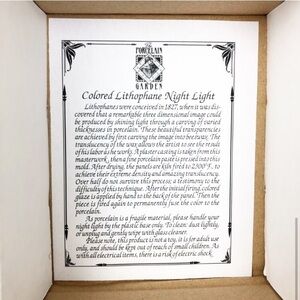 The
PORCELAIN
GARDEN
Colored Lithophane Night Light
Lithophanes were conceived in 1827, when it was dis-
covered that a remarkable three dimensional image could
be produced by shining light through a carving of varied
thicknesses in porcelain. These beautiful transparencies
are achieved by first carving the image into bee swax. The
translucency of the wax allows the artist to see the result
of his labor as the work. A plaster casting is taken from this
masterwork, then a fine porcelain paste is pressed into this
mold. After drying, the panels are kiln fired to 2,500° F. to
achieve their extreme density and amazing translucency.
Over half do not survive this process; a testimony to the
difficulty of this technique. After the initial firing, colored
glaze is applied by hand to the back of the panel. Then the
piece is fired again to permanently fuse the color to the
porcelain.
As porcelain is a fragile material, please handle your
night light by the plastic base only. To clean: dust lightly,
or unplug and gently wipe with glass cleaner.
Please note, this product is not a toy, it is for adult use
only, and should be kept out of reach of small children. As
with all electrical items, there is a risk of electric shock.